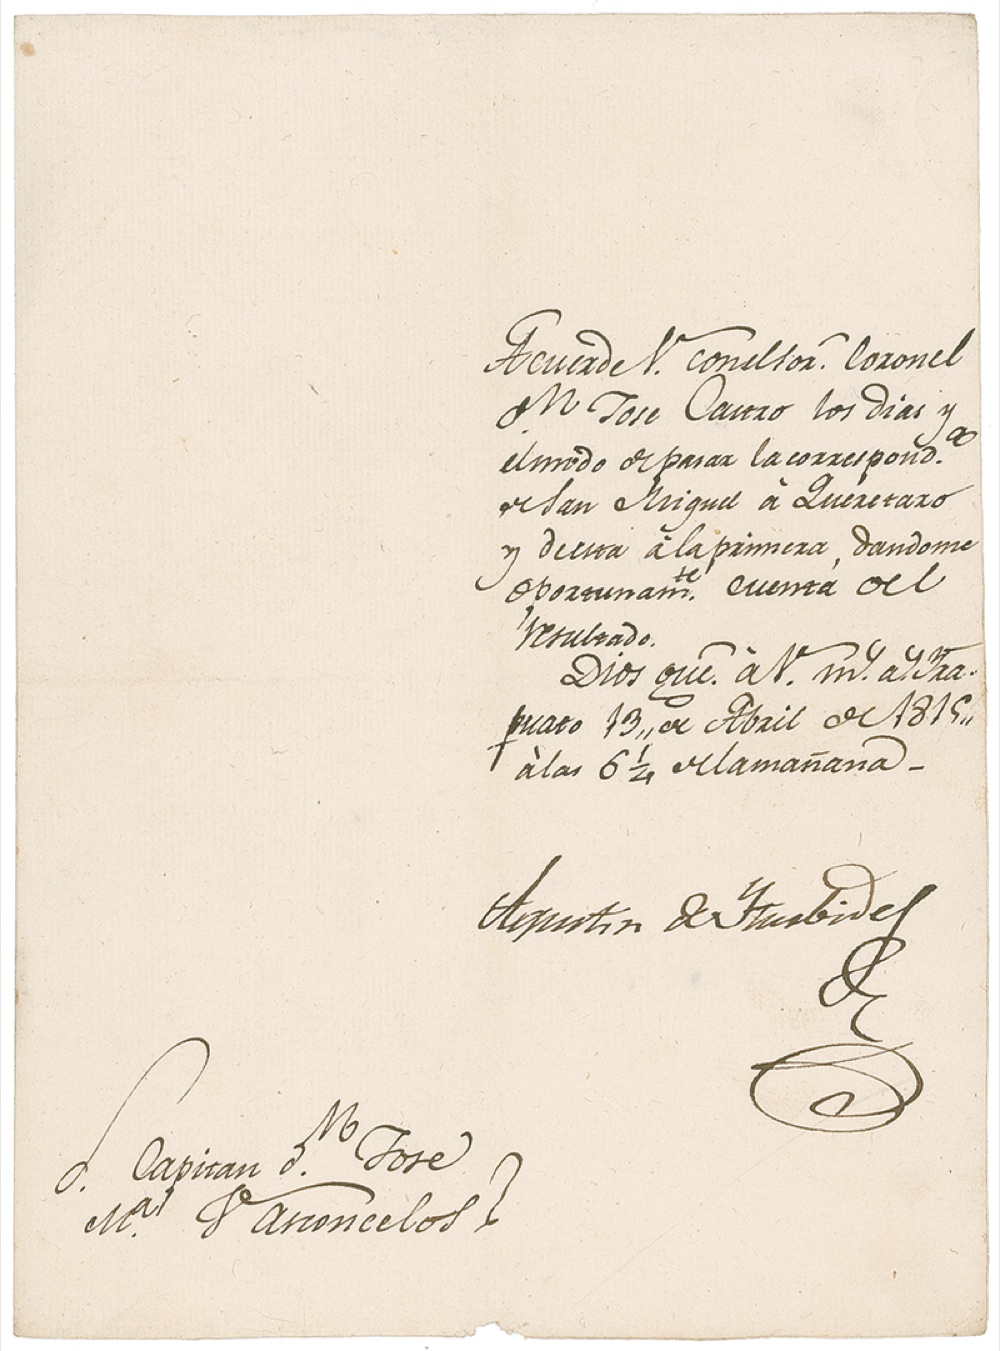 Acuerde V. con el Sor. Coronel
dn Jose Castro los dias y
el modo de pasar la correspond.a
de San Miguel à Queretaro
y de esta à la primera, dandome
oportunam.te cuenta del
resultado.
Dios gue. à V. m.s a.s Yra-
puato 13,, de Abril de 1815,,
à las 6 1/4 de la mañana -
Agustin de Yturbide
S. Capitan d.n Jose
M.a Vasconcelos